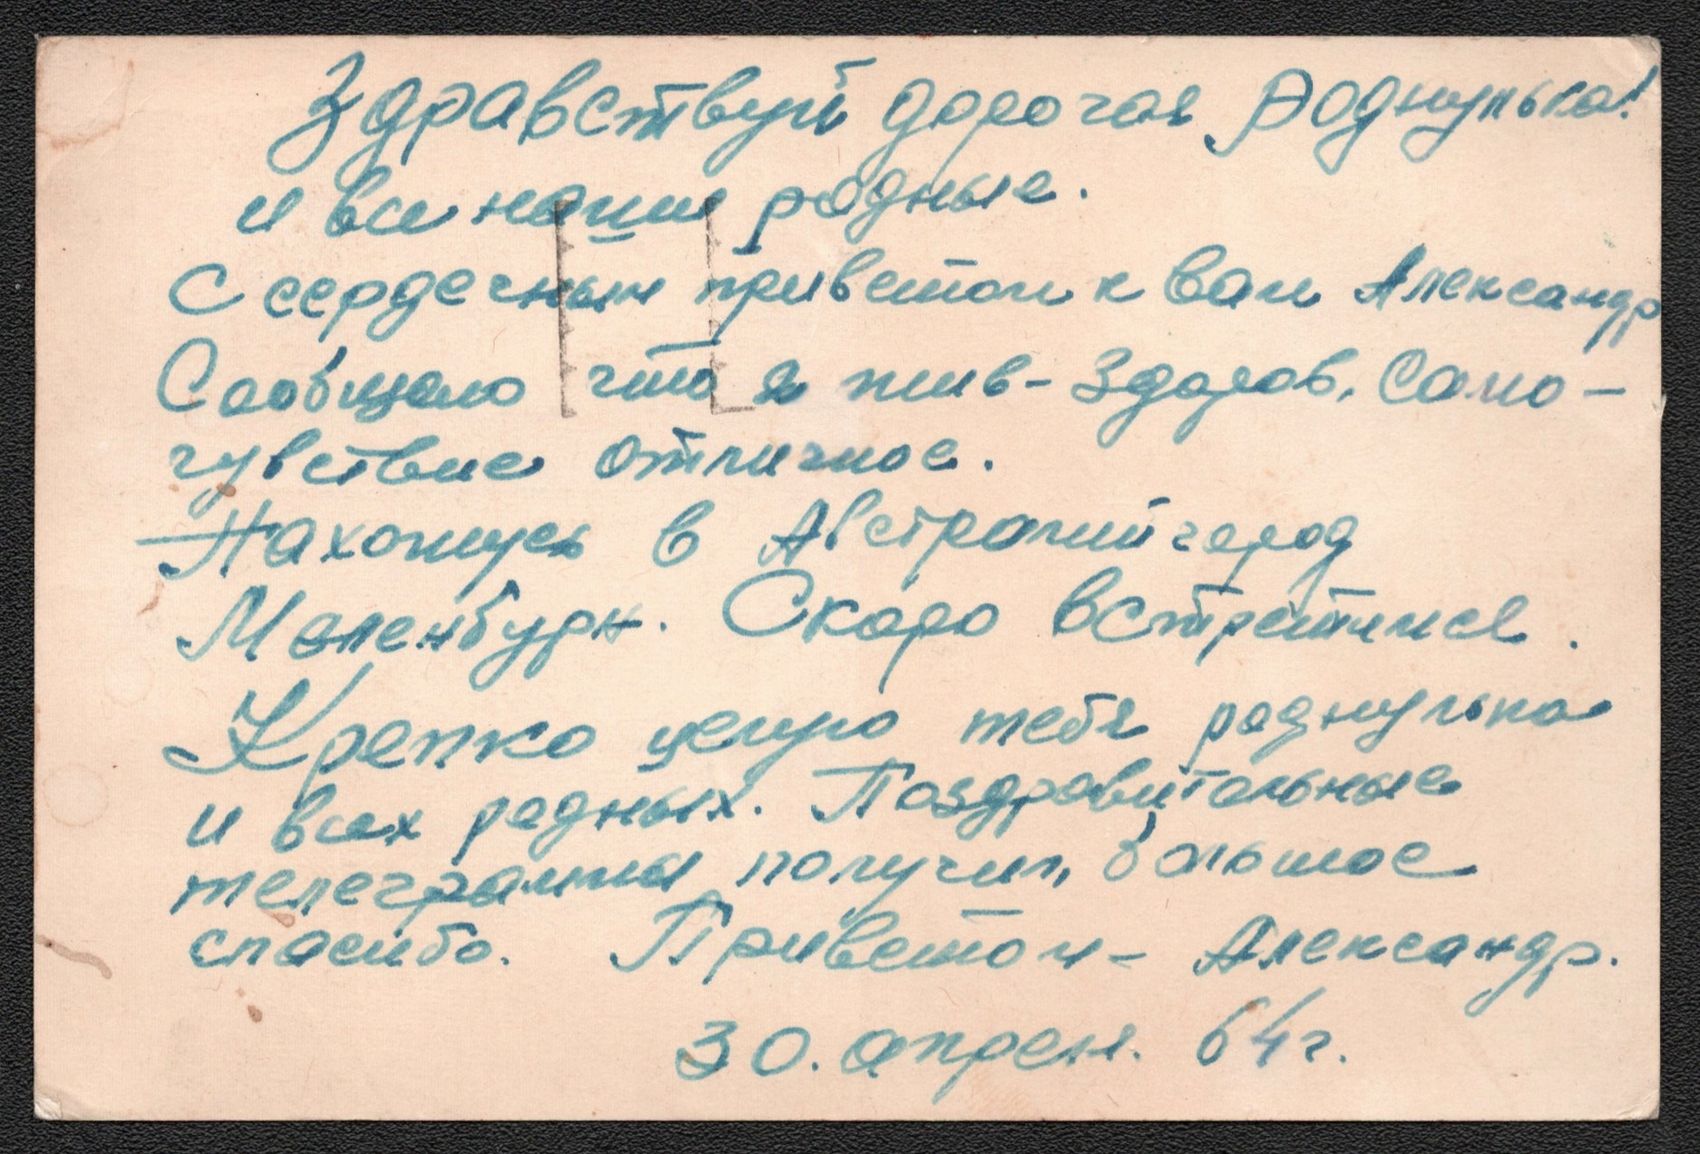 Здравствуй дорогая Роднулька!
и все наши родные.
С сердечным приветом к вам Александр
Сообщаю что я жив-здоров, само-
чувствие отличное.
Нахожусь в Австралии город
Мельбурн. Скоро встретимся.
Крепко целую тебя роднулька
и всех родных. Поздравительные
телеграммы получил, большое
спасибо. Приветом - Александр.
30. апреля. 64г.